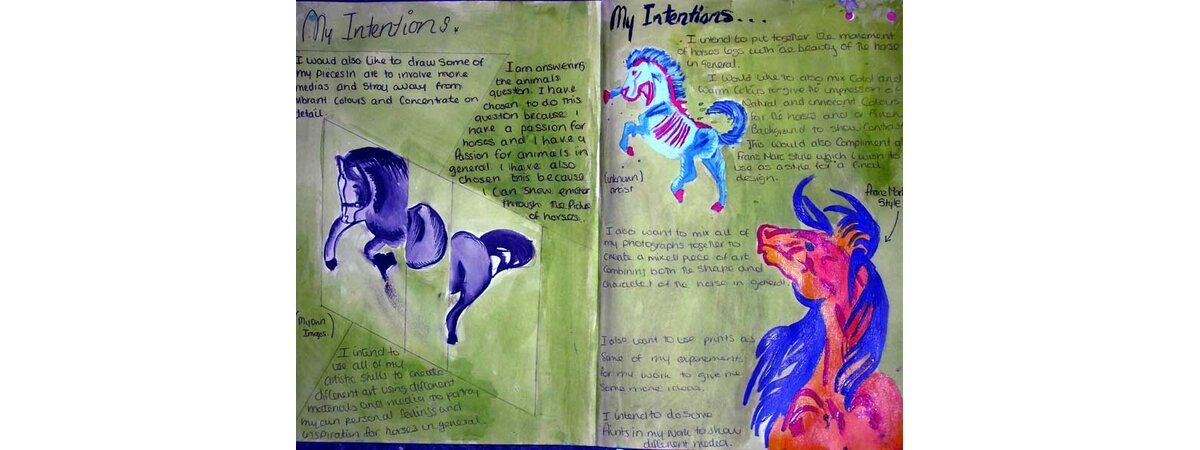 My Intentions.
I would also like to draw some of
my pieces in art to involve more
medias and stray away from
vibrant colours and concentrate on
detail.
I am answering
the animals
question. I have
chosen to do this
question because I
have a passion for
horses and I have a
passion for animals in
general. I have also
chosen this because
I can show emotion
through the picture
of horses...
(My own
Images.)
I intend to
use all of my
artistic skills to create
different art using different
materials and media to portray
my own personal feelings and
inspiration for horses in general.
My Intentions...
I intend to put together the movement
of horses legs with the beauty of the horse
in general.
I would like to also mix cold and
warm colours to give the impression of
Natural and innocent colours
for the horses and a
Background to show contrast
This would also compliment a
Franz Marc style which I wish to
use as a style for a final
design.
(unknown)
artist
Franz Marc
Style
I also want to mix all of
my photographs together to
create a mixed piece of art
combining both the shape and
character of the horse in general.
I also want to use prints as
some of my experements
for my work to give me
some more ideas.
I intend to do some
Prints in my work to show
different media.